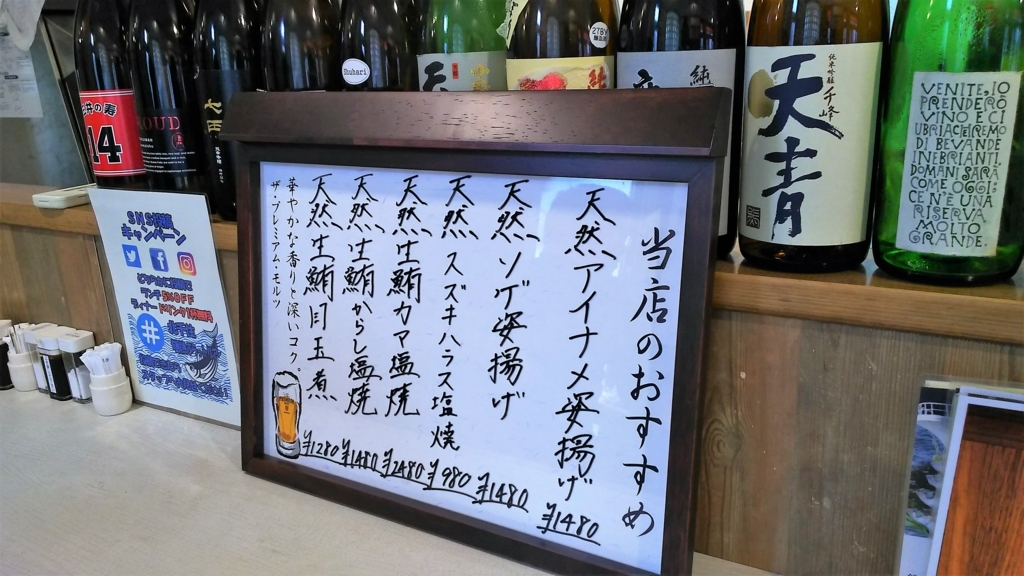 当店のおすすめ
天然アイナメ姿揚げ ¥1480
天然ソゲ姿揚げ ¥1480
天然スズキハラス塩焼 ¥980
天然生鮪カマ塩焼 ¥2480
天然生鮪からし塩焼 ¥1480
天然生鮪目玉煮 ¥1280
華やかな香りと深いコク。
ザ・プレミアム・モルツ
SNS投稿
キャンペーン
ランチ 5%OFF
ディナー ドリンク1杯無料
#
井の寿
14
Shuhari
純米吟醸 千峰
天青
VENITE, IO
PRENDERÒ
VINO E CI
UBRIACHEREMO
DI BEVANDE
INEBRIANTI.
DOMANI SARÀ
COME OGGI:
CEN'È UNA
RISERVA
MOLTO
GRANDE.